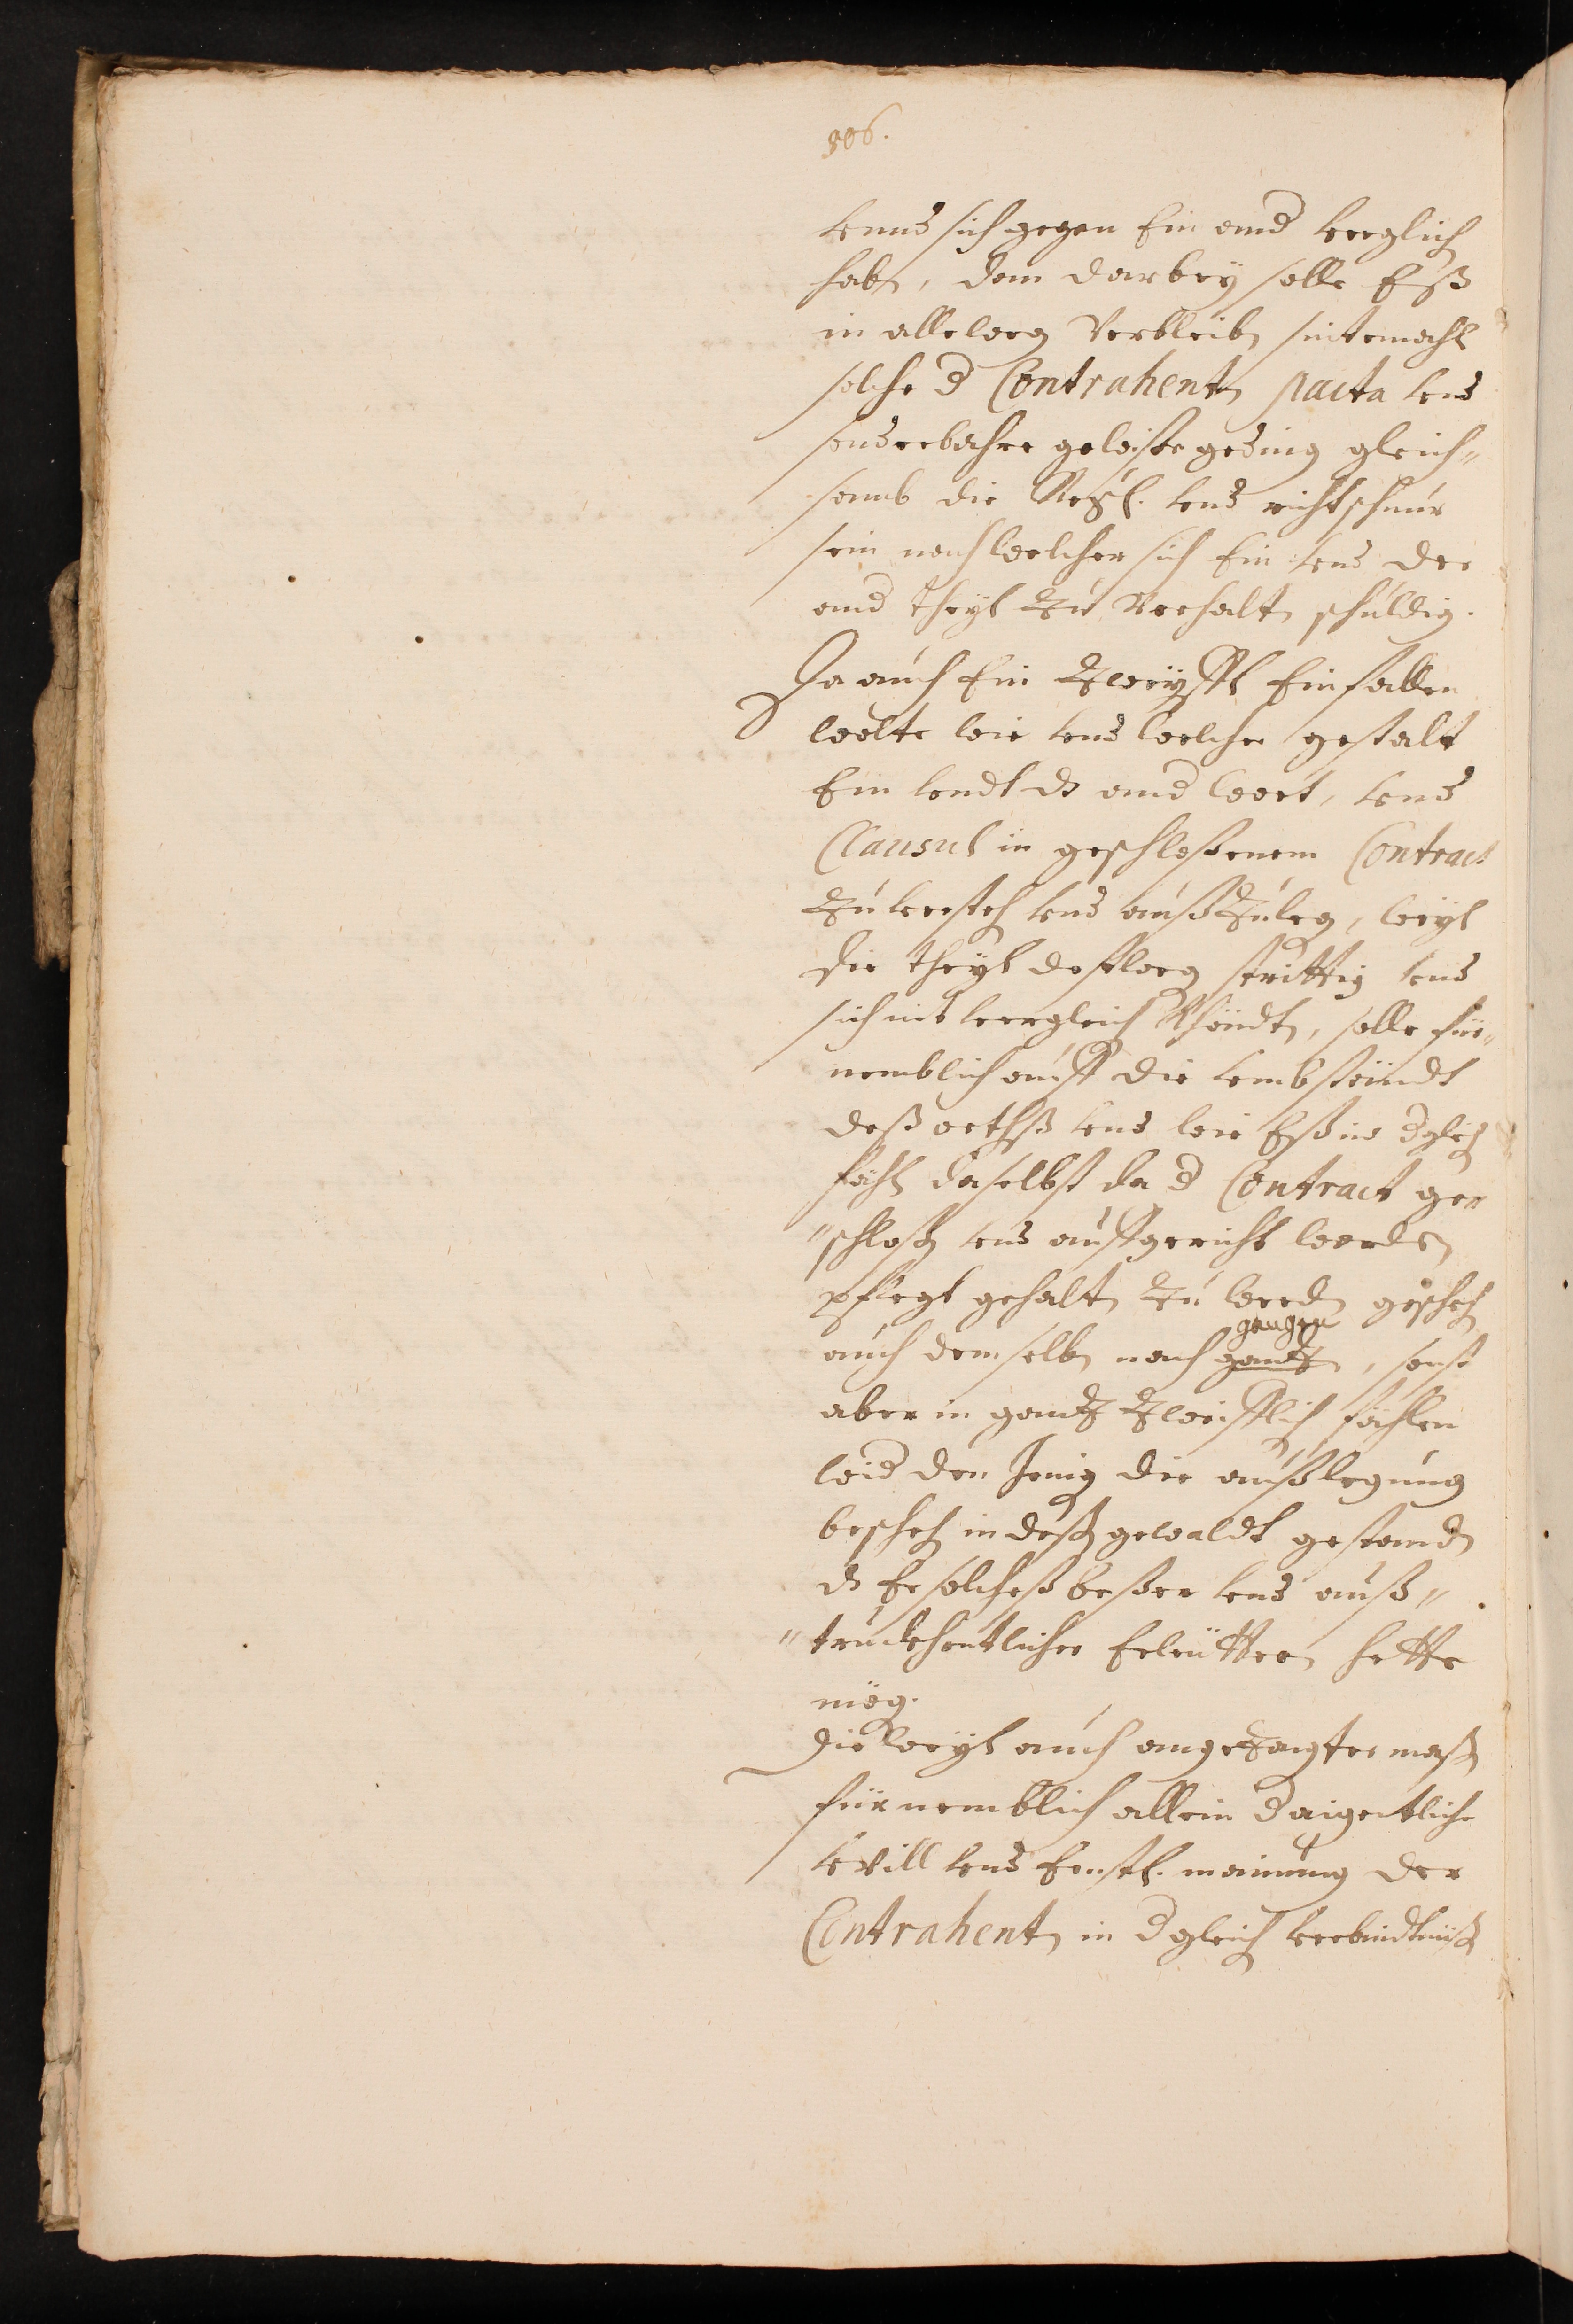 906.
vnnd sich gegen Ein and verglich
habn, dem darbey solle Eß
in alleweg Verbleibn sintemahl
solche d Contrahentn pacta vnd
sonderbahre gewiße geding gleich„
samb die Regl. vnd richtschnur
sein nach welcher sich Ein vnd der
and theyl Zu Verhaltn schuldig.
Da auch Ein Zweyffl Einfallen
wolte wie vnd welcher gestalt
Ein vndt ds and wort, vnd
Clausul in geschloßenem Contract
Zu versteh vnd außZuleg, weyl
die theyl destweg strittig vnd
sich nit vergleich Khöndtn, solle für„
nemblich auff die vmbständt
deß orthß vnd wie Eß in dgleich
fähl daselbst da d Contract ge„
„schloß vnd auffgericht worden
pflegt gehaltn Zu werdn gesehen
auch demselbn nach gantzn gangen, sonst
aber in gantz Zweifflich fählen
wid den Jenig die außlegung
bescheh in deß gewaldt gestandn
ds Er solcheß beßer vnd auß„
„truckhentlicher Erleuttern hette
mög.
Dieweyl auch angeZaigter maßn
fürnemblich allein d aigentliche
will vnd Ernstl. mainung der
Contrahentn in dgleich verbindtnuß